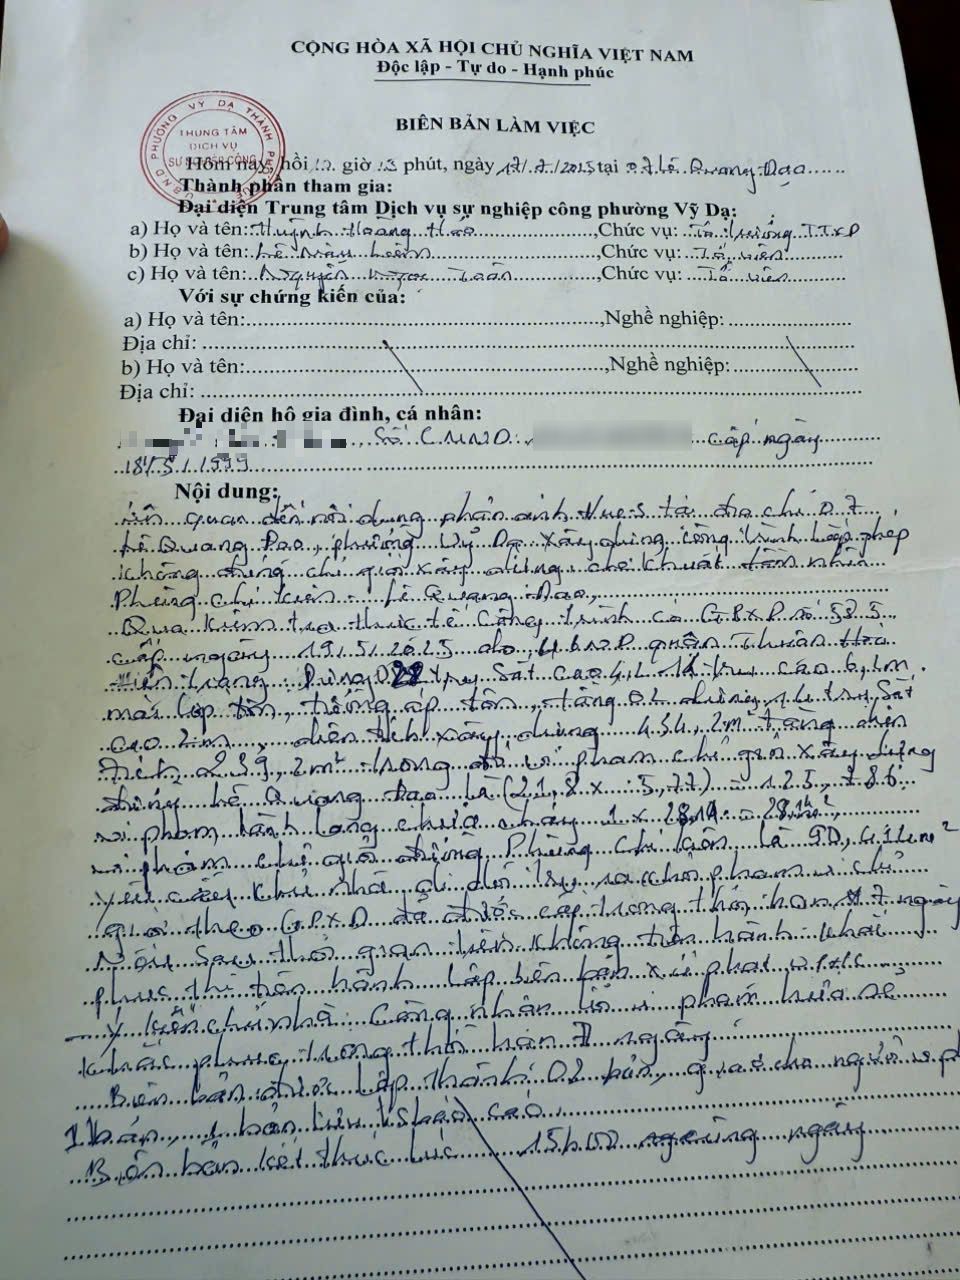 CỘNG HÒA XÃ HỘI CHỦ NGHĨA VIỆT NAM
Độc lập - Tự do - Hạnh phúc
BIÊN BẢN LÀM VIỆC
U.B.N.D PHƯỜNG VỸ DẠ THÀNH PHỐ HUẾ
TRUNG TÂM
DỊCH VỤ
SỰ NGHIỆP CÔNG
Hôm nay, hồi giờ phút, ngày 17/7/2025 tại 07 Lê Quang Đạo
Thành phần tham gia:
Đại diện Trung tâm Dịch vụ sự nghiệp công phường Vỹ Dạ:
a) Họ và tên: Huỳnh Hoàng Hảo, Chức vụ: Tổ trưởng TTXD
b) Họ và tên: Lê, Chức vụ: Tổ viên
c) Họ và tên: Nguyễn Ngọc, Chức vụ: Tổ viên
Với sự chứng kiến của:
a) Họ và tên:, Nghề nghiệp:
Địa chỉ:
b) Họ và tên:, Nghề nghiệp:
Địa chỉ:
Đại diện hộ gia đình, cá nhân:
Số CMND: cấp ngày
18/5/1999
Nội dung:
Liên quan đến nội dung phản ánh Hue-S tại địa chỉ 07
Lê Quang Đạo, phường Vỹ Dạ xây dựng công trình cấp phép
không đúng chỉ giới xây dựng, che khuất tầm nhìn
Phùng Chí Kiên - Lê Quang Đạo,
Qua kiểm tra thực tế công trình có GPXD số 585
cấp ngày 19/5/2025 do UBND quận Thuận Hóa
Hiện trạng: trụ sắt cao trụ cao 6,1m
mái lợp tôn, tường ốp tôn, tầng 02 dựng 14 trụ sắt
cao 2m, diện tích xây dựng 434,2m² tầng diện
tích 239,2m² trong đó vi phạm chỉ giới xây dựng
đường Lê Quang Đạo là (21,8 x 5,77) = 125,786
vi phạm hành lang chữa cháy 1 x 28,14 = 28,14m²
vi phạm chỉ giới đường Phùng Chí Kiên là 90,411m²
Yêu cầu chủ nhà di dời trụ ra khỏi phạm vi chỉ
giới theo GPXD đã được cấp trong thời hạn 7 ngày
Nếu sau thời gian trên không tiến hành khắc
phục thì tiến hành lập biên bản xử phạt
- Ý kiến chủ nhà: Công nhận lỗi vi phạm hứa sẽ
khắc phục trong thời hạn 7 ngày
Biên bản được lập thành 02 bản, giao cho người vi ph
1 bản, 1 bản lưu báo cáo
Biên bản kết thúc lúc 15h00 cùng ngày